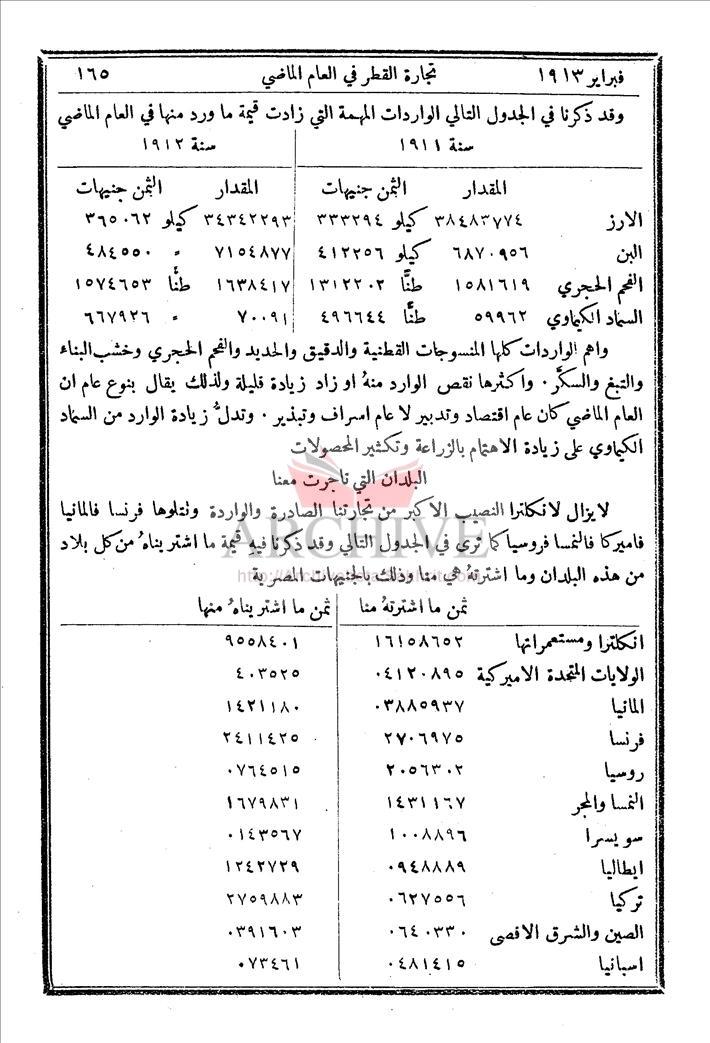 فبراير ١٩١٣ تجارة القطر في العام الماضي ١٦٥
وقد ذكرنا في الجدول التالي الواردات المهمة التي زادت قيمة ما ورد منها في العام الماضي
سنة ١٩١١ سنة ١٩١٢
المقدار الثمن جنيهات المقدار الثمن جنيهات
الارز ٣٨٤٨٣٧٧٤ كيلو ٣٣٣٢٩٤ ٣٤٣٤٢٢٩٣ كيلو ٣٦٥٠٦٢
البن ٦٨٧٠٩٥٦ كيلو ٤١٢٢٥٦ ٧١٥٤٨٧٧ " ٤٨٤٥٥٠
الفحم الحجري ١٥٨١٦١٩ طنًّا ١٣١٢٢٠٢ ١٦٣٨٤١٧ طنًّا ١٥٧٤٦٥٣
السماد الكيماوي ٥٩٩٦٢ طنًّا ٤٩٦٦٤٤ ٧٠٠٩١ " ٦٦٧٩٢٦
واهم الواردات كلها المنسوجات القطنية والدقيق والحديد والفحم الحجري وخشب البناء
والتبغ والسكَّر. واكثرها نقص الوارد منهُ او زاد زيادة قليلة ولذلك يقال بنوع عام ان
العام الماضي كان عام اقتصاد وتدبير لا عام اسراف وتبذير. وتدلُّ زيادة الوارد من السماد
الكيماوي على زيادة الاهتمام بالزراعة وتكثير المحصولات
البلدان التي تاجرت معنا
لا يزال لانكلترا النصيب الاكبر من تجارتنا الصادرة والواردة وتتلوها فرنسا فالمانيا
فاميركا فالنمسا فروسيا كما ترى في الجدول التالي وقد ذكرنا فيهِ قيمة ما اشتريناهُ من كل بلاد
من هذه البلدان وما اشترتهُ هي منا وذلك بالجنيهات المصرية
ثمن ما اشترتهُ منا ثمن ما اشتريناهُ منها
انكلترا ومستعمراتها ١٦١٥٨٦٥٢ ٩٥٥٨٤٠١
الولايات المتحدة الاميركية ٠٤١٢٠٨٩٥ ٤٠٣٥٢٥
المانيا ٠٣٨٨٥٩٣٧ ١٤٢١١٨٠
فرنسا ٢٧٠٦٩٧٥ ٢٤١١٤٢٥
روسيا ٢٠٥٦٣٠٢ ٠٧٦٤٥١٥
النمسا والمجر ١٤٣١١٦٧ ١٦٧٩٨٣١
سويسرا ١٠٠٨٨٩٦ ٠١٤٣٥٦٧
ايطاليا ٠٩٤٨٨٨٩ ١٢٤٢٧٢٩
تركيا ٠٦٢٧٥٥٦ ٢٧٥٩٨٨٣
الصين والشرق الاقصى ٠٦٤٠٣٣٠ ٠٣٩١٦٠٣
اسبانيا ٠٤٨١٤١٥ ٠٧٣٤٦١
ARCHIVE